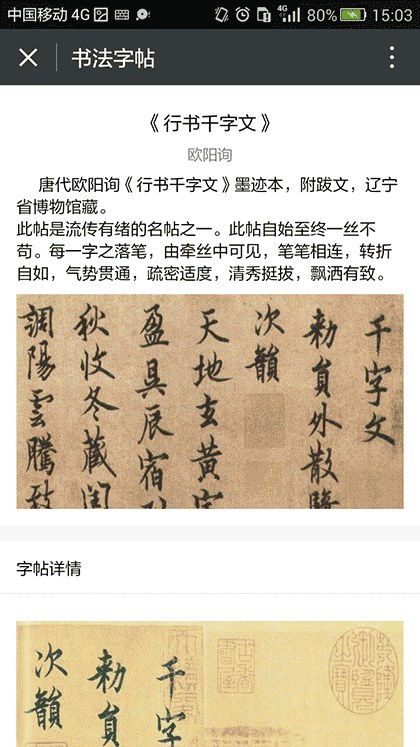 中国移动 4G 4G 80% 15:03
书法字帖
《行书千字文》
欧阳询
唐代欧阳询《行书千字文》墨迹本，附跋文，辽宁
省博物馆藏。
此帖是流传有绪的名帖之一。此帖自始至终一丝不
苟。每一字之落笔，由牵丝中可见，笔笔相连，转折
自如，气势贯通，疏密适度，清秀挺拔，飘洒有致。
千字文
勑員外散騎
次韻
天地玄黄宇
盈昃辰宿
秋收冬藏閏
調陽雲騰致
字帖详情
千字
勑員
次韻